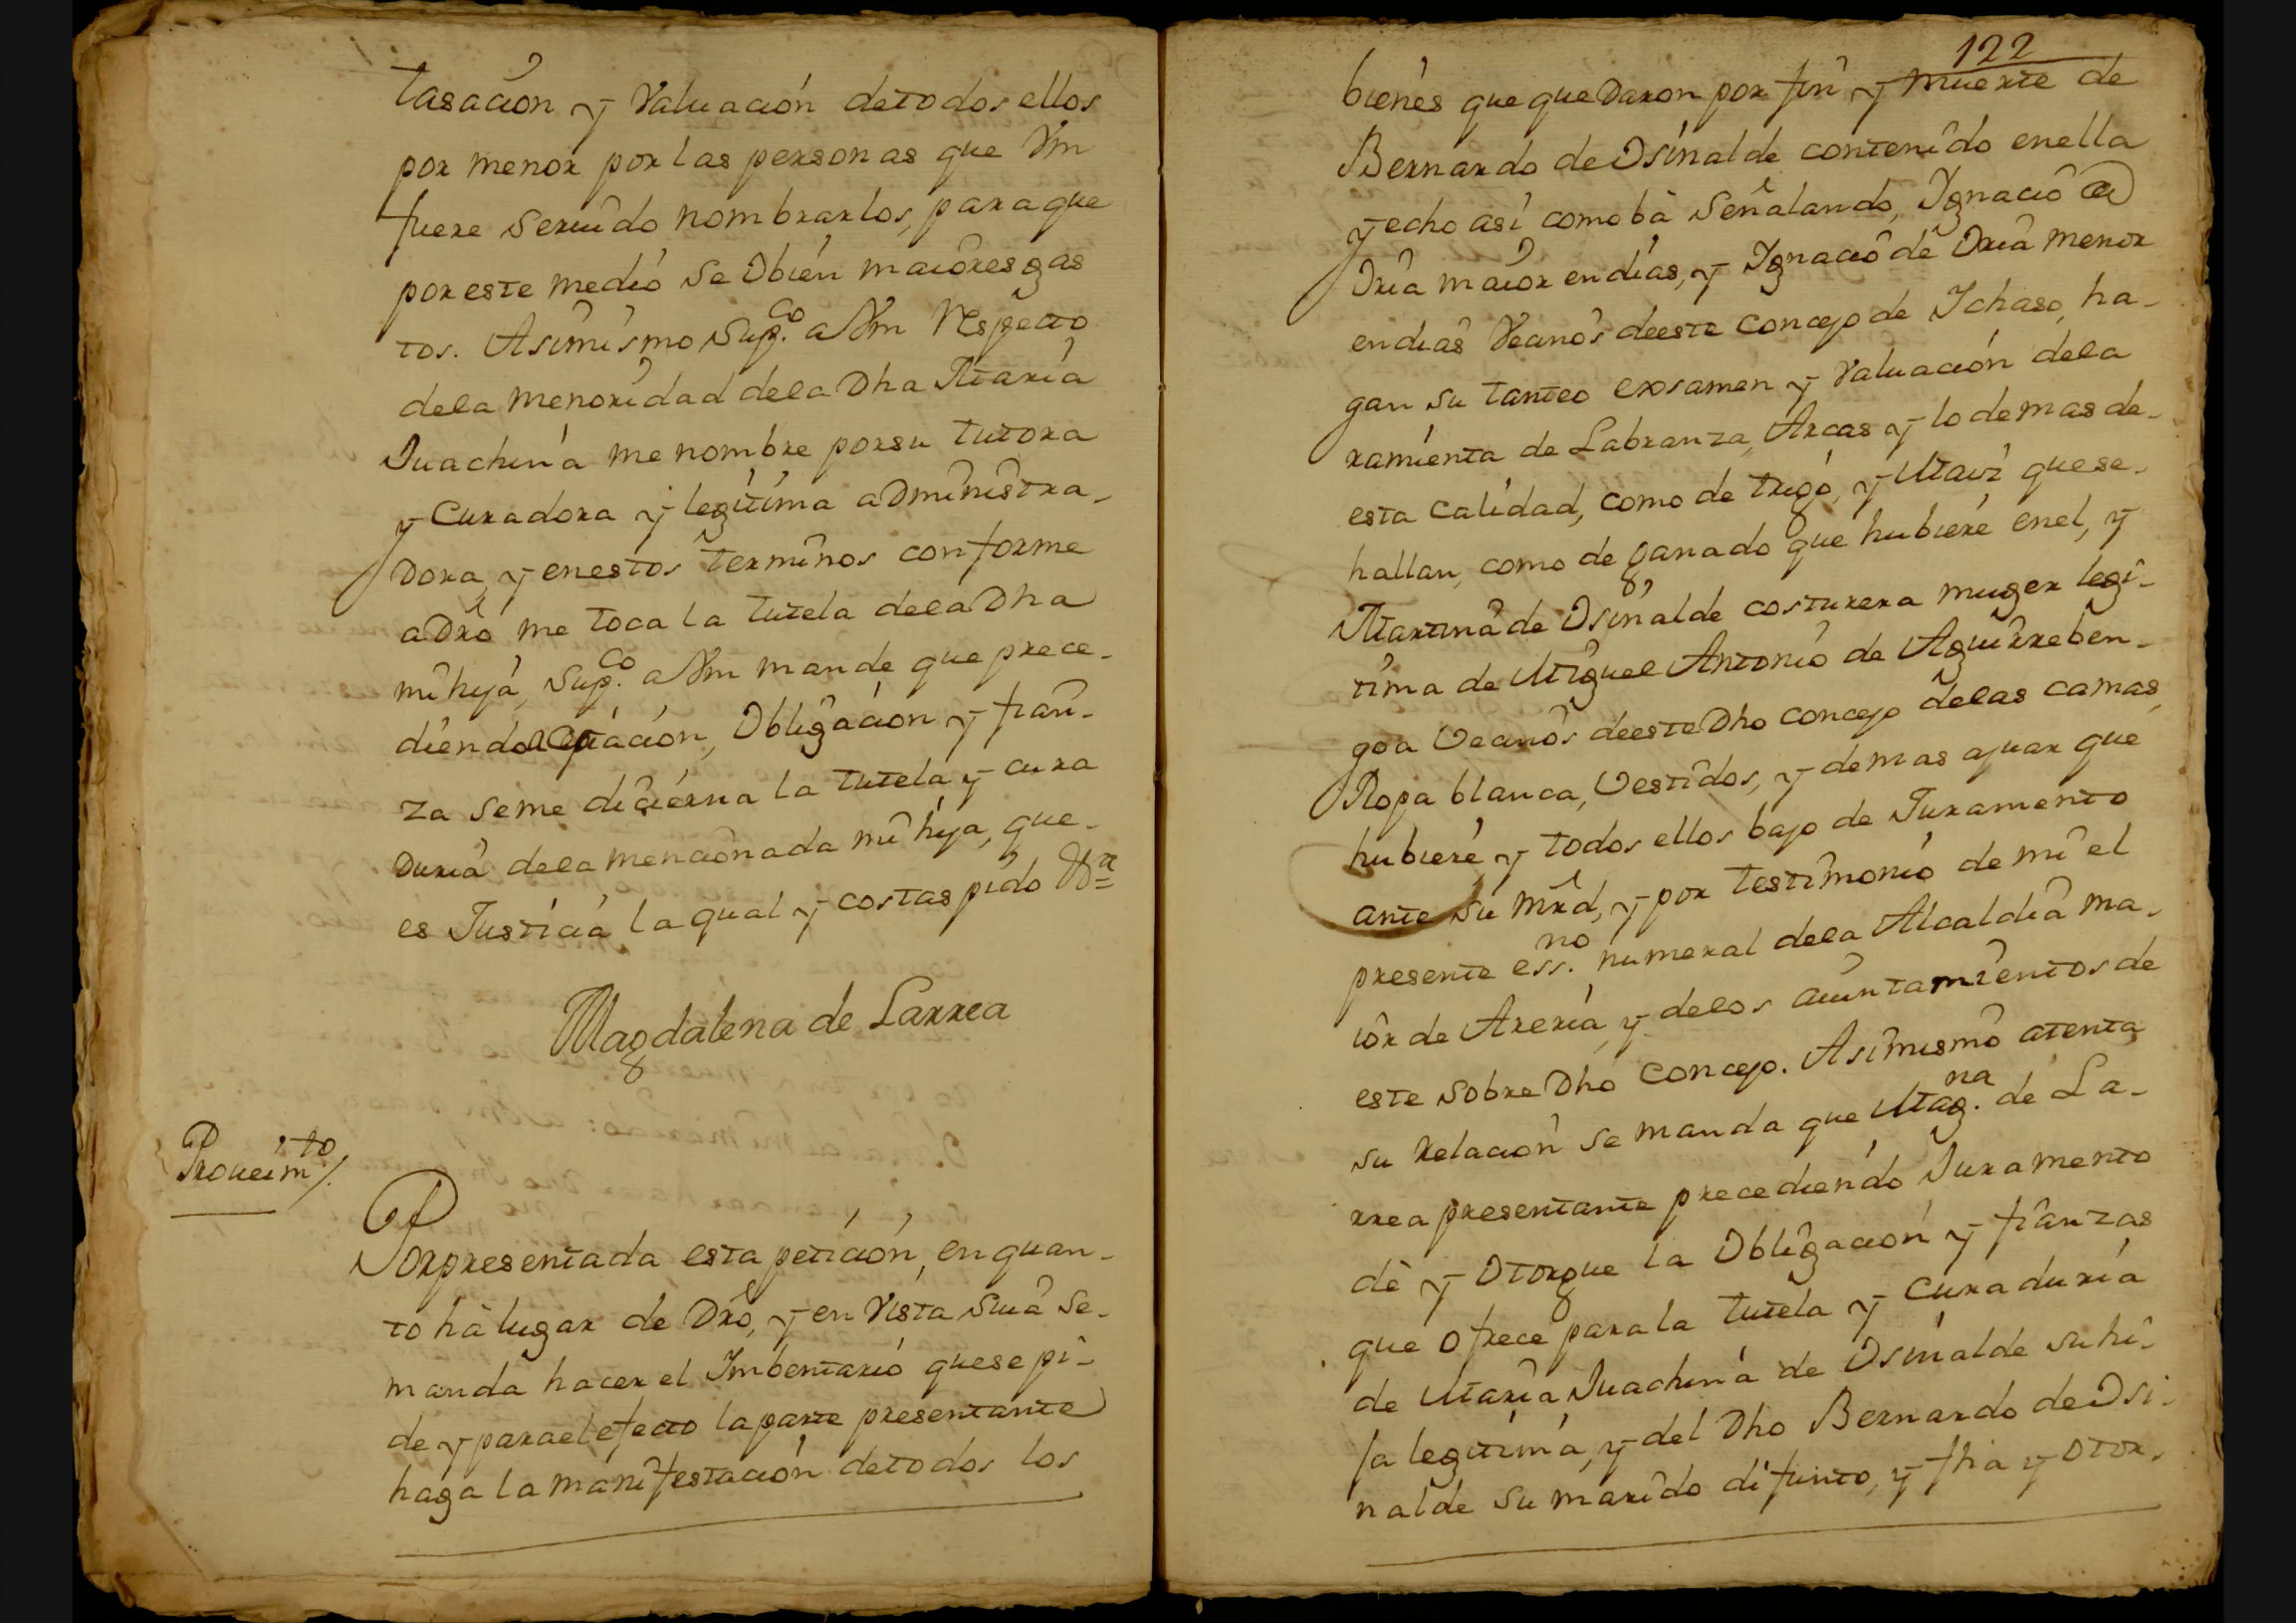 tasacion y Valuación detodos ellos
por menor por las personas que Vm
fuere seruido nombrarlos, paraque
por este medió se Obien maiores gas
tos. Asimismo Sup.co a Vm Respecto
dela menoridad dela Dha Maria
Juachina me nombre porsu tutora
y Curadora y legítima aDministra-
Dora, y enestos terminos conforme
a Dro me toca la tutela dela Dha
mi hija, Sup.co a Vm mande que prece-
diendo aceptación, Obligacion y fian-
za seme dicierna la tutela y cura
Duria dela mencionada mi hija, que-
es Justicia la qual y costas pido &ra=
Magdalena de Larrea
Proueimto/.
Por presentada esta petición, en quan-
to hà lugar de Dro, y en Vista suia se-
manda hacer el Imbentario quese pi-
de y para el efecto la parte presentante
haga la manifestación detodos los
122
bienes que queDaron por fin y muerte de
Bernardo de Osinalde contenido enella
y echo asi como bà Señalando, Ignacio de
Oria maior en dias, y Ignacio de Oria menor
en dias Vecinos deeste concejo de Ichaso, ha-
gan su tanteo exsamen y Valuación dela
ramienta de Labranza, Arcas y lo demas de-
esta calidad, como de trigo, y Maiz quese-
hallan, como de ganado que hubiere enel, y
Martina de Osinalde costurera muger legi-
tima de Miguel Antonio de Aguirreben-
goa Vecinos deeste Dho concejo delas camas,
Ropa blanca, Vestidos, y demas ajuar que
hubiere, y todos ellos bajo de Juramento
ante su mrd, y por testimonio de mi el
presente ess.no numeral dela Alcaldia ma-
ior de Areria, y delos aiuntamientos de
este sobre Dho concejo. Asimismo atenta
su relacion se manda que Mag.na de La-
rrea presentante precediendo Juramento
dè y Otorgue la Obligacion y fianzas
que ofrece para la tutela y Curaduria
de Maria Juachina de Osinalde su hi-
ja legitima, y del Dho Bernardo de Osi-
nalde su marido difunto, y fha y otor-